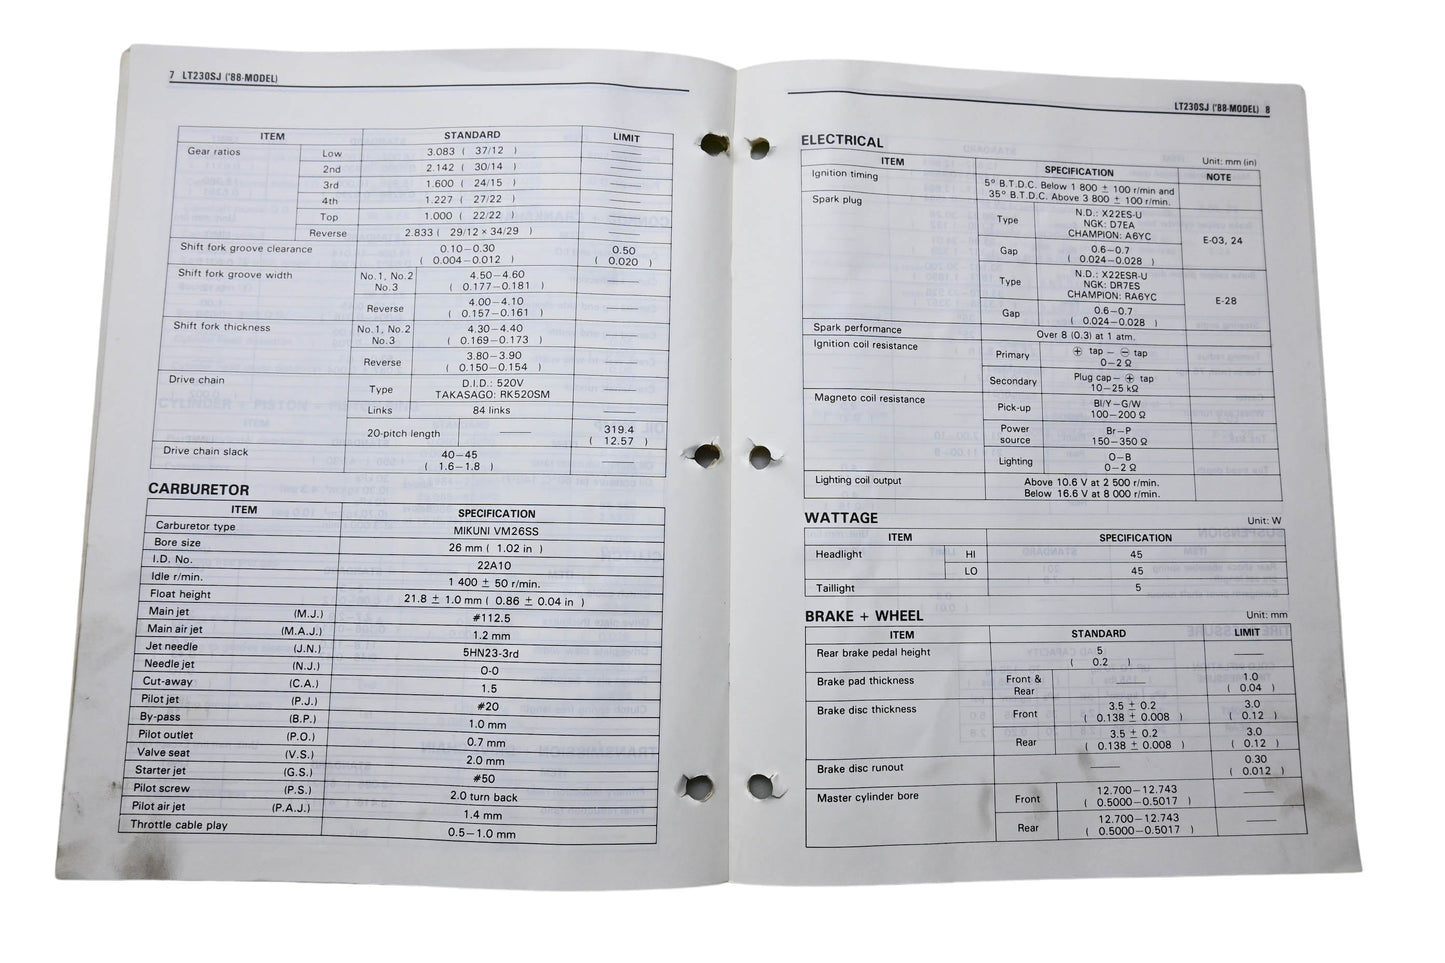 7 LT230SJ ('88-MODEL)
ITEM STANDARD LIMIT
Gear ratios Low 3.083 ( 37/12 ) ——
2nd 2.142 ( 30/14 ) ——
3rd 1.600 ( 24/15 ) ——
4th 1.227 ( 27/22 ) ——
Top 1.000 ( 22/22 ) ——
Reverse 2.833 ( 29/12 × 34/29 ) ——
Shift fork groove clearance 0.10–0.30 0.50
( 0.004–0.012 ) ( 0.020 )
Shift fork groove width No.1, No.2 4.50–4.60
No.3 ( 0.177–0.181 ) ——
Reverse 4.00–4.10
( 0.157–0.161 ) ——
Shift fork thickness No.1, No.2 4.30–4.40
No.3 ( 0.169–0.173 ) ——
Reverse 3.80–3.90
( 0.150–0.154 ) ——
Drive chain Type D.I.D.: 520V
TAKASAGO: RK520SM ——
Links 84 links ——
20-pitch length —— 319.4
( 12.57 )
Drive chain slack 40–45
( 1.6–1.8 ) ——
CARBURETOR
ITEM SPECIFICATION
Carburetor type MIKUNI VM26SS
Bore size 26 mm ( 1.02 in )
I.D. No. 22A10
Idle r/min. 1 400 ± 50 r/min.
Float height 21.8 ± 1.0 mm ( 0.86 ± 0.04 in )
Main jet (M.J.) #112.5
Main air jet (M.A.J.) 1.2 mm
Jet needle (J.N.) 5HN23-3rd
Needle jet (N.J.) O-0
Cut-away (C.A.) 1.5
Pilot jet (P.J.) #20
By-pass (B.P.) 1.0 mm
Pilot outlet (P.O.) 0.7 mm
Valve seat (V.S.) 2.0 mm
Starter jet (G.S.) #50
Pilot screw (P.S.) 2.0 turn back
Pilot air jet (P.A.J.) 1.4 mm
Throttle cable play 0.5–1.0 mm
LT230SJ ('88-MODEL) 8
ELECTRICAL Unit: mm (in)
ITEM SPECIFICATION NOTE
Ignition timing 5° B.T.D.C. Below 1 800 ± 100 r/min and
35° B.T.D.C. Above 3 800 ± 100 r/min.
Spark plug Type N.D.: X22ES-U
NGK: D7EA
CHAMPION: A6YC E-03, 24
Gap 0.6–0.7
( 0.024–0.028 )
Type N.D.: X22ESR-U
NGK: DR7ES
CHAMPION: RA6YC E-28
Gap 0.6–0.7
( 0.024–0.028 )
Spark performance Over 8 (0.3) at 1 atm.
Ignition coil resistance Primary ⊕ tap – ⊖ tap
0–2 Ω
Secondary Plug cap – ⊕ tap
10–25 kΩ
Magneto coil resistance Pick-up Bl/Y–G/W
100–200 Ω
Power source Br–P
150–350 Ω
Lighting O–B
0–2 Ω
Lighting coil output Above 10.6 V at 2 500 r/min.
Below 16.6 V at 8 000 r/min.
WATTAGE Unit: W
ITEM SPECIFICATION
Headlight HI 45
LO 45
Taillight 5
BRAKE + WHEEL Unit: mm
ITEM STANDARD LIMIT
Rear brake pedal height 5
( 0.2 ) ——
Brake pad thickness Front & Rear —— 1.0
( 0.04 )
Brake disc thickness Front 3.5 ± 0.2 3.0
( 0.138 ± 0.008 ) ( 0.12 )
Rear 3.5 ± 0.2 3.0
( 0.138 ± 0.008 ) ( 0.12 )
Brake disc runout —— 0.30
( 0.012 )
Master cylinder bore Front 12.700–12.743
( 0.5000–0.5017 ) ——
Rear 12.700–12.743
( 0.5000–0.5017 ) ——